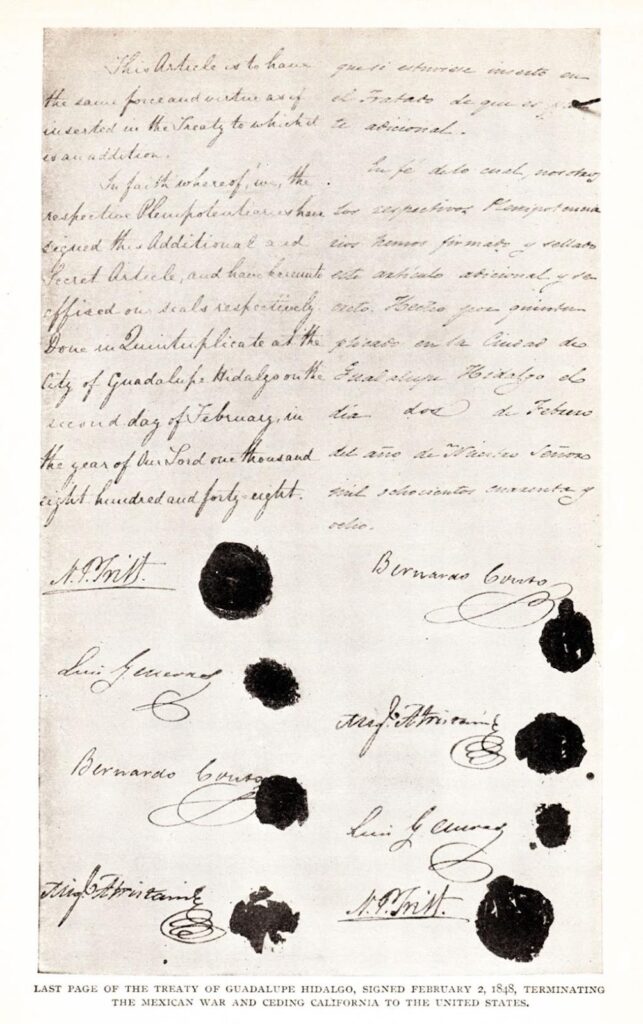 This Article is to have
the same force and virtue as if
inserted in the Treaty to which it
is an addition.
In faith whereof, we, the
respective Plenipotentiaries have
signed this Additional and
Secret Article, and have hereunto
affixed our seals respectively.
Done in Quintuplicate at the
City of Guadalupe Hidalgo on the
second day of February, in
the year of Our Lord one thousand
eight hundred and forty-eight.
que si estuviese inserto en
el Tratado de que es
te adicional.
En fé de lo cual, nosotros
los respectivos Plenipotencia
rios hemos firmado y sellado
este artículo adicional y se
creto. Hecho por quintu
plicado en la Ciudad de
Guadalupe Hidalgo el
dia dos de Febrero
del año de Nuestro Señor
mil ochocientos cuarenta y
ocho.
N. P. Trist.
Luis G. Cuevas
Bernardo Couto
Mig.l Atristain
Bernardo Couto
Mig.l Atristain
Luis G. Cuevas
N. P. Trist.
LAST PAGE OF THE TREATY OF GUADALUPE HIDALGO, SIGNED FEBRUARY 2, 1848, TERMINATING
THE MEXICAN WAR AND CEDING CALIFORNIA TO THE UNITED STATES.